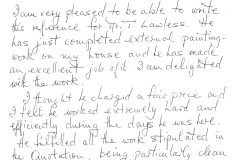 I am very pleased to be able to write
this reference for Mr. T. Lawless. He
has just completed external painting-
work on my house and he has made
an excellent job of it. I am delighted
with the work.
I thought he charged a fair price and
I felt he worked extremely hard and
efficiently during the days he was here.
He fulfilled all the work stipulated in
the Quotation, being particularly clean